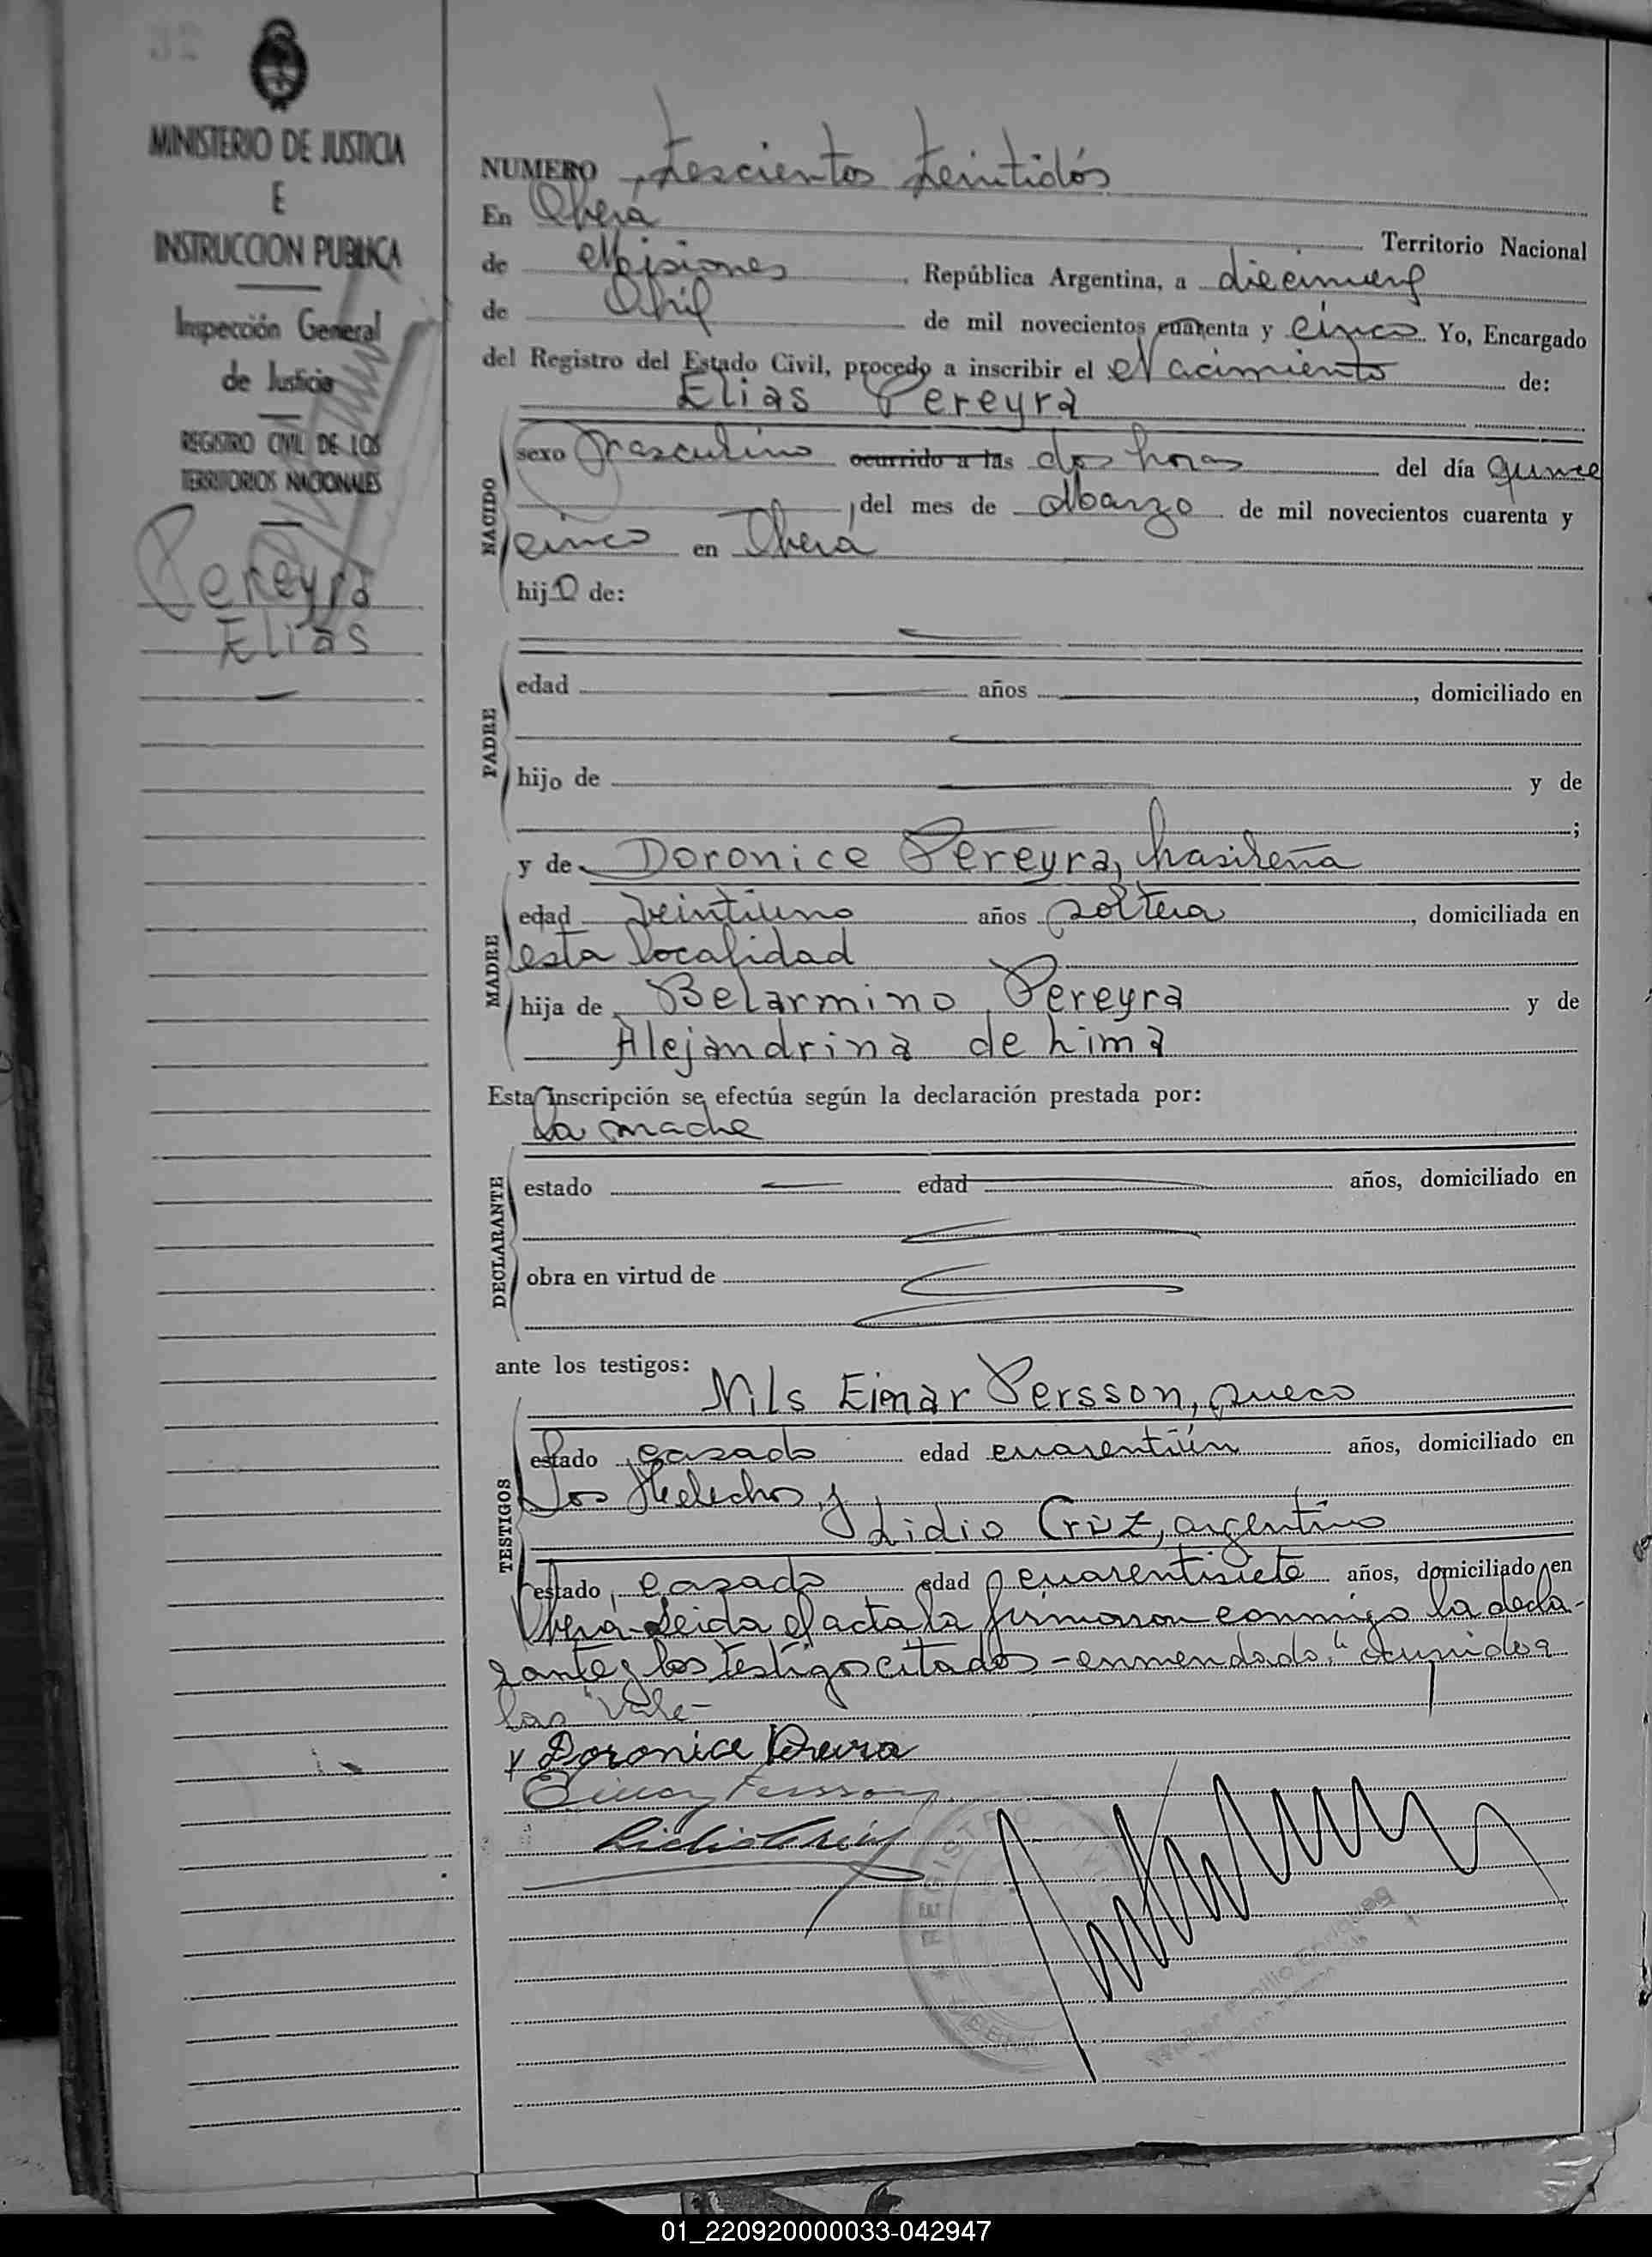 MINISTERIO DE JUSTICIA
E
INSTRUCCION PUBLICA
Inspección General
de Justicia
REGISTRO CIVIL DE LOS
TERRITORIOS NACIONALES
Pereyra
Elias
NUMERO Trescientos treintidós
En Oberá Territorio Nacional
de Misiones, República Argentina, a diecinueve
de Abril de mil novecientos cuarenta y cinco Yo, Encargado
del Registro del Estado Civil, procedo a inscribir el Nacimiento de:
Elias Pereyra
NACIDO
sexo masculino ocurrido a las dos horas del día quince
del mes de Marzo de mil novecientos cuarenta y
cinco en Oberá
hijo de:
PADRE
edad años , domiciliado en
hijo de y de
;
y de Doronice Pereyra, brasileña
MADRE
edad veintiuno años soltera, domiciliada en
esta localidad
hija de Belarmino Pereyra y de
Alejandrina de Lima
Esta inscripción se efectúa según la declaración prestada por:
la madre
DECLARANTE
estado edad años, domiciliado en
obra en virtud de
ante los testigos:
Nils Eimar Persson, sueco
TESTIGOS
estado casado edad cuarentiún años, domiciliado en
Los Helechos y
Lidio Cruz, argentino
estado casado edad cuarentisiete años, domiciliado en
Oberá-Leida el acta la firmaron conmigo la decla-
rante y los testigos citados-enmendado: "ocurrido a
las" Vale-
x Doronice Pereira
Eimar Persson
Lidio Cruz
REGISTRO CIVIL
01_220920000033-042947